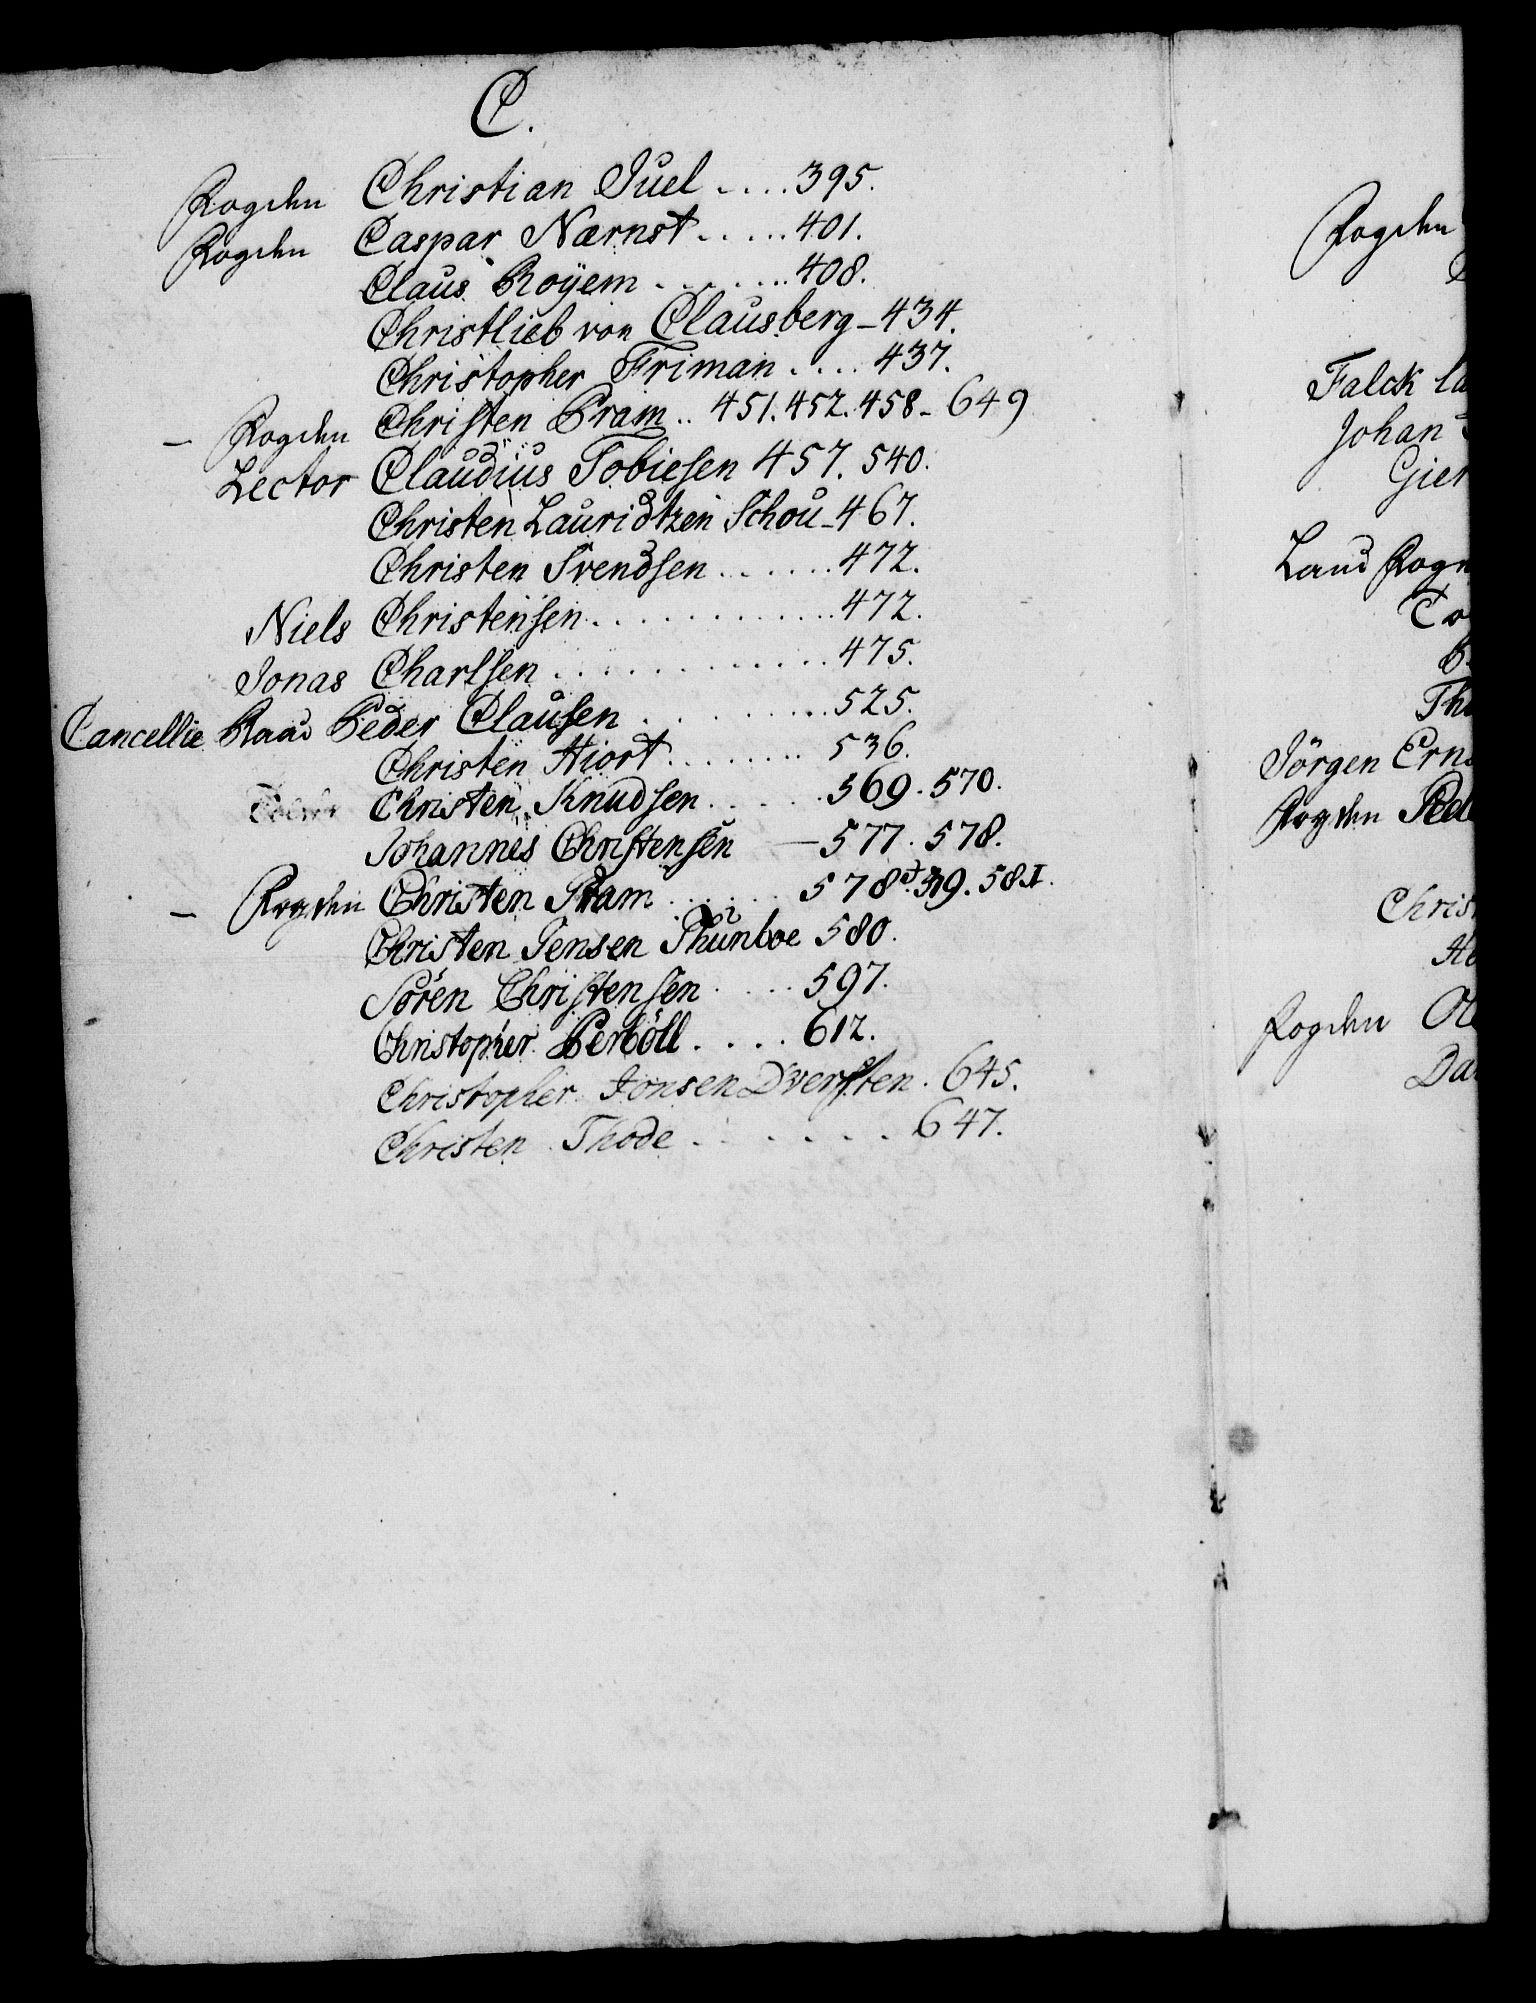 C.
Fogden Christian Juel .... 395.
Fogden Caspar Nærnst ..... 401.
Claus Royem ........ 408.
Christlieb von Clausberg - 434.
Christopher Friman .... 437.
- Fogden Christen Pram .. 451. 452. 458 - 649
Lector Claudius Tobiesen 457. 540.
Christen Lauridtzen Schou - 467.
Christen Svendsen ...... 472.
Niels Christensen ............ 472.
Jonas Charlsen ............ 475.
Cancellie Raad Peder Clausen ........ 525.
Christen Hiort ........ 536.
Christen Knudsen ..... 569. 570.
Johannes Christensen - 577. 578.
- Fogden Christen Pram ..... 578. 579. 581.
Christen Jensen Thunboe 580.
Sören Christensen .... 597.
Christopher Perböll .... 612.
Christopher Jonsen Dversten. 645.
Christen Thode ...... 647.
Fogden
Falck
Johan
Gier
Land Fogd
Th
Jörgen Erns
Fogden Ped
Chris
He
Fogden Ol
Da